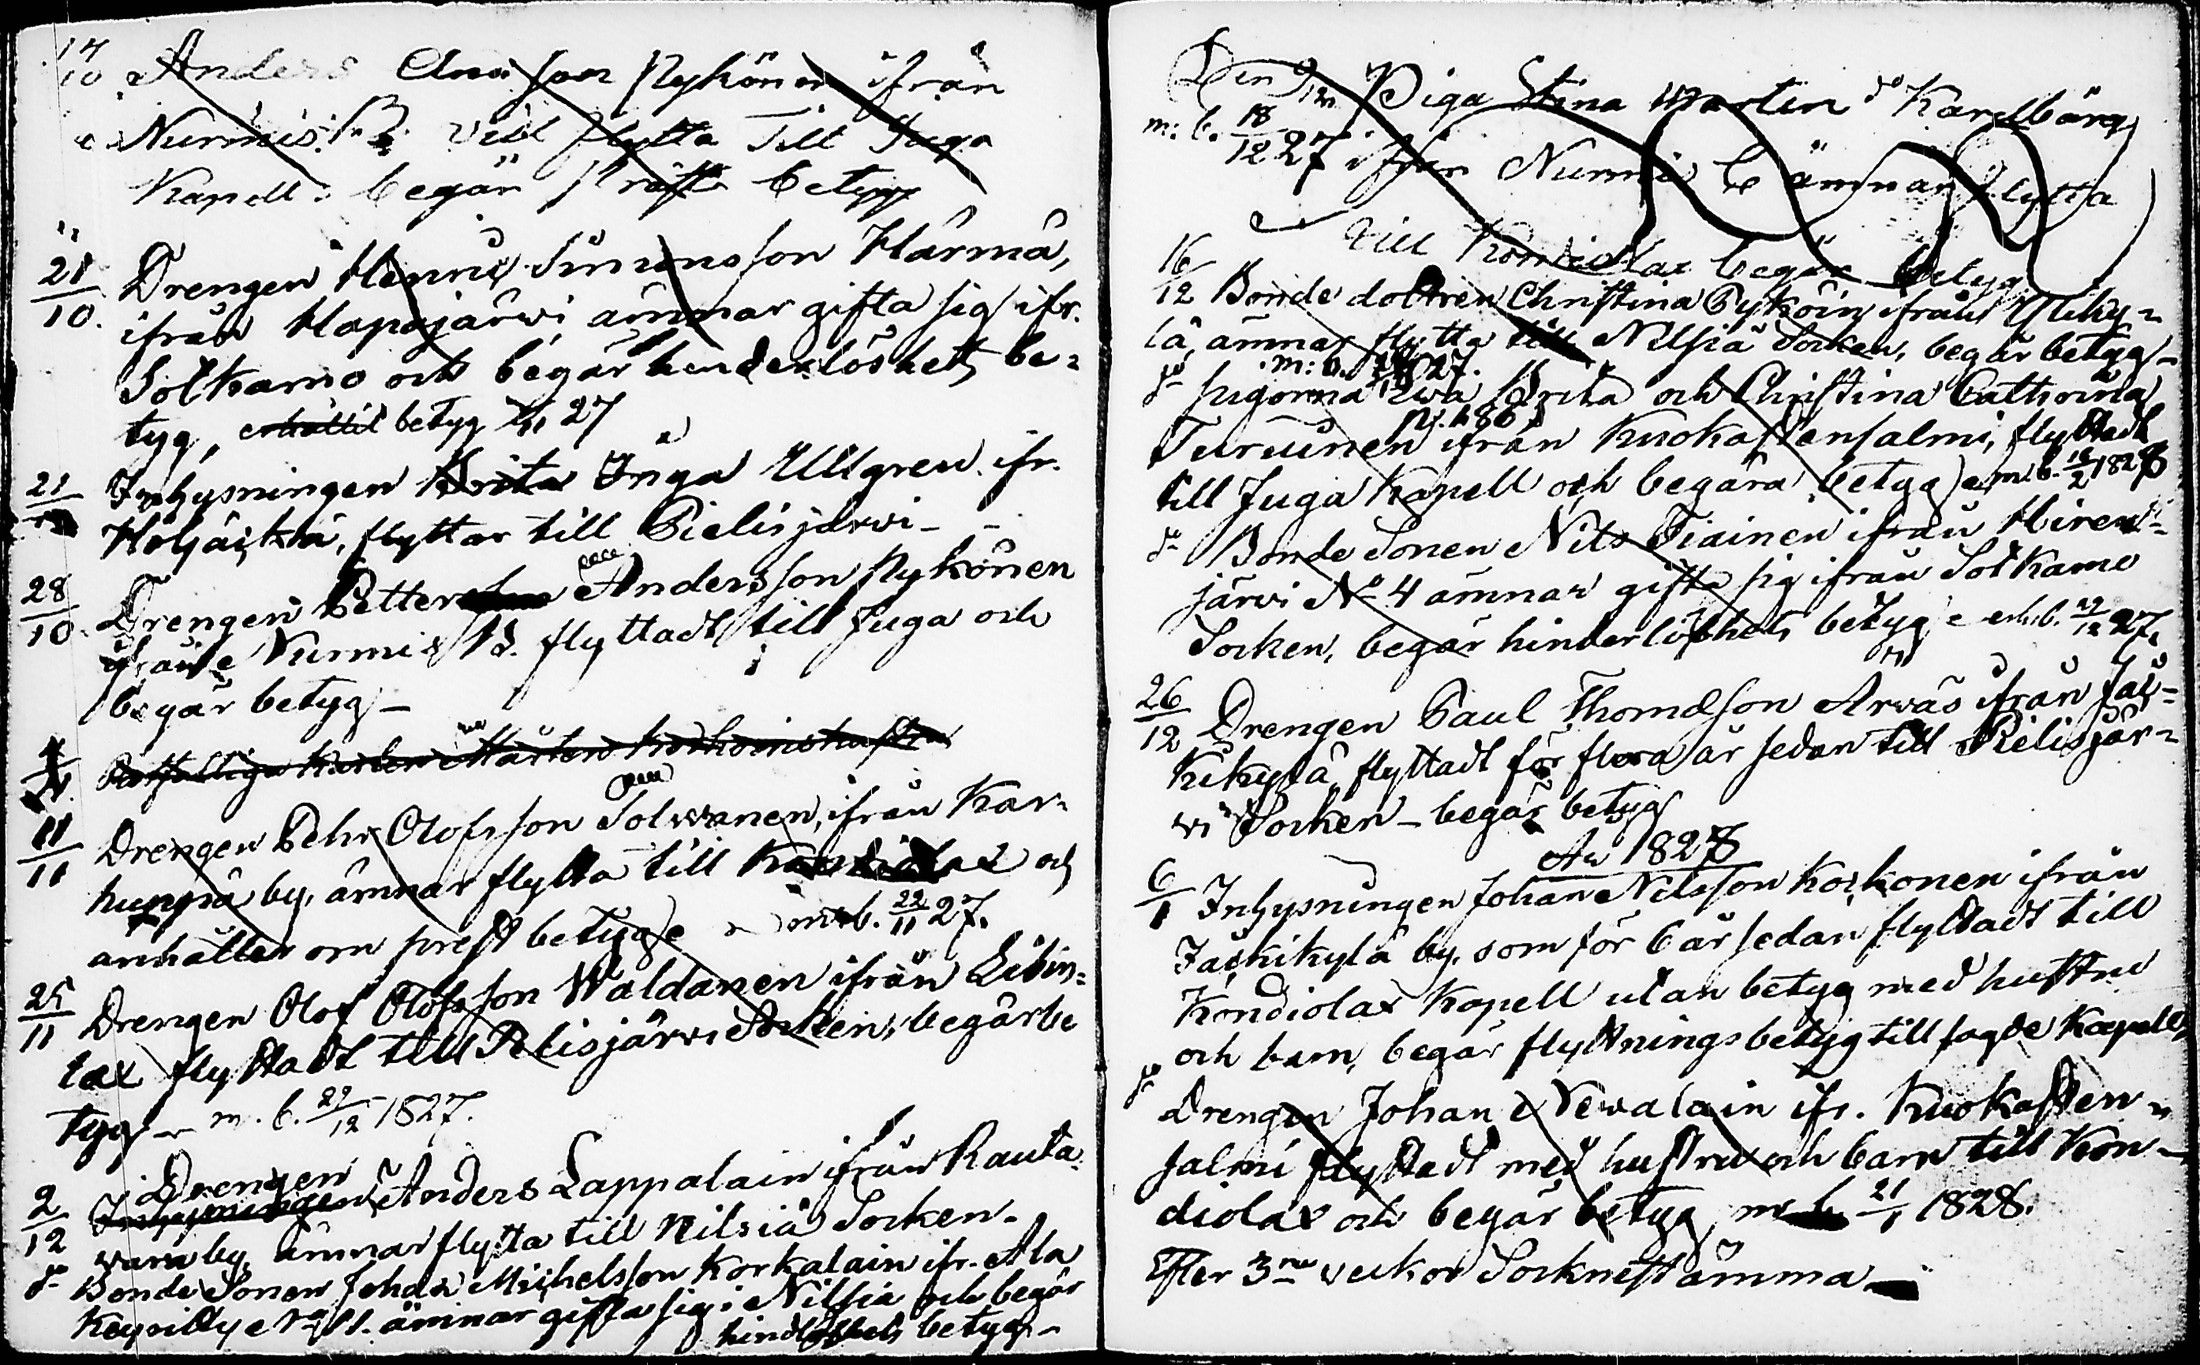 14/10 Anders Andersson Nykönen ifrån
Nurmis vill flytta Till Juga
Kapell: begär Präste betyg
21/10. Drengen Henric Simonsson Härmä,
ifrån Hapajärwi ämnar gifta sig ifr.
Sotkamo och begär hinderlöshets be=
tyg, erhållit betyg 27
21 Inhysningen Brita Inga Ullgren ifr.
Höljäkkä, flyttar till Pielisjärwi -
28/10. Drengen Petter Andersson Nykönen
ifrån Nurmis B. flyttadt till Juga och
begär betyg -
Rotfattiga Karlen Mårten
11/11 Drengen Pehr Olofsson Solwanen, ifrån Kar=
huupää by, ämnar flytta till Kondiolax och
anhåller om prest betyg m. b. 22/11 27.
25/11 Drengen Olof Olofsson Waldanen ifrån Libin=
lax flyttadt till Pielisjärwi Socken, begär be
tyg - m. b. 29/12 1827.
Drengen
2/12 Inhysningen Anders Lappalain ifrån Rauta
wara by, ämnar flytta till Nilsiä Socken -
do Bonde Sonen Johan Michelsson Korkalain ifr. Ala
Keyritty No 11. ämnar gifta sig i Nilsiä och begär
hindlöshets betyg -
Den 9/12 Piga Stina Marten do Karlbärg
m: b. 18/12 27 ifrån Nurmis by ämnar flytta
till Kondiolax begär betyg
16/12 Bonde dottren Christina Pyköin ifrån Yliky=
lä, ämnar flytta till Nilsiä Socken, begär betyg -
m: b. 27.
do pigorna Ewa Brita och Christina Cathrina
p. 186
Turuinen ifrån Kuokastensalmi, flyttadt
till Juga Kapell och begära betyg m. b. 16/2 1828
do Bonde Sonen Nils Tiainen ifrån Hiren=
järvi No 4 ämnar gifta sig ifrån Sotkamo
Socken, begär hinderlöshets betyg erh. b. 27.
26/12 Drengen Paul Thomasson Arwas ifrån Jäs=
kikylä, flyttadt för flera år sedan till Pielisjär=
wi Socken - begär betyg
An 1828
6/1 Inhysningen Johan Nilsson Korkonen ifrån
Jäskikylä by, som för 6 år sedan flyttadt till
Kondiolax Kapell utan betyg med hustru
och barn, begär flyttnings betyg till sagde Kapell,
do Drengen Johan Newalain ifr. Kuokasten=
salmi flyttadt med hustru och barn till Kon-
diolax och begär betyg, m b 21/1 1828.
Efter 3ne veckor Socknestämma -